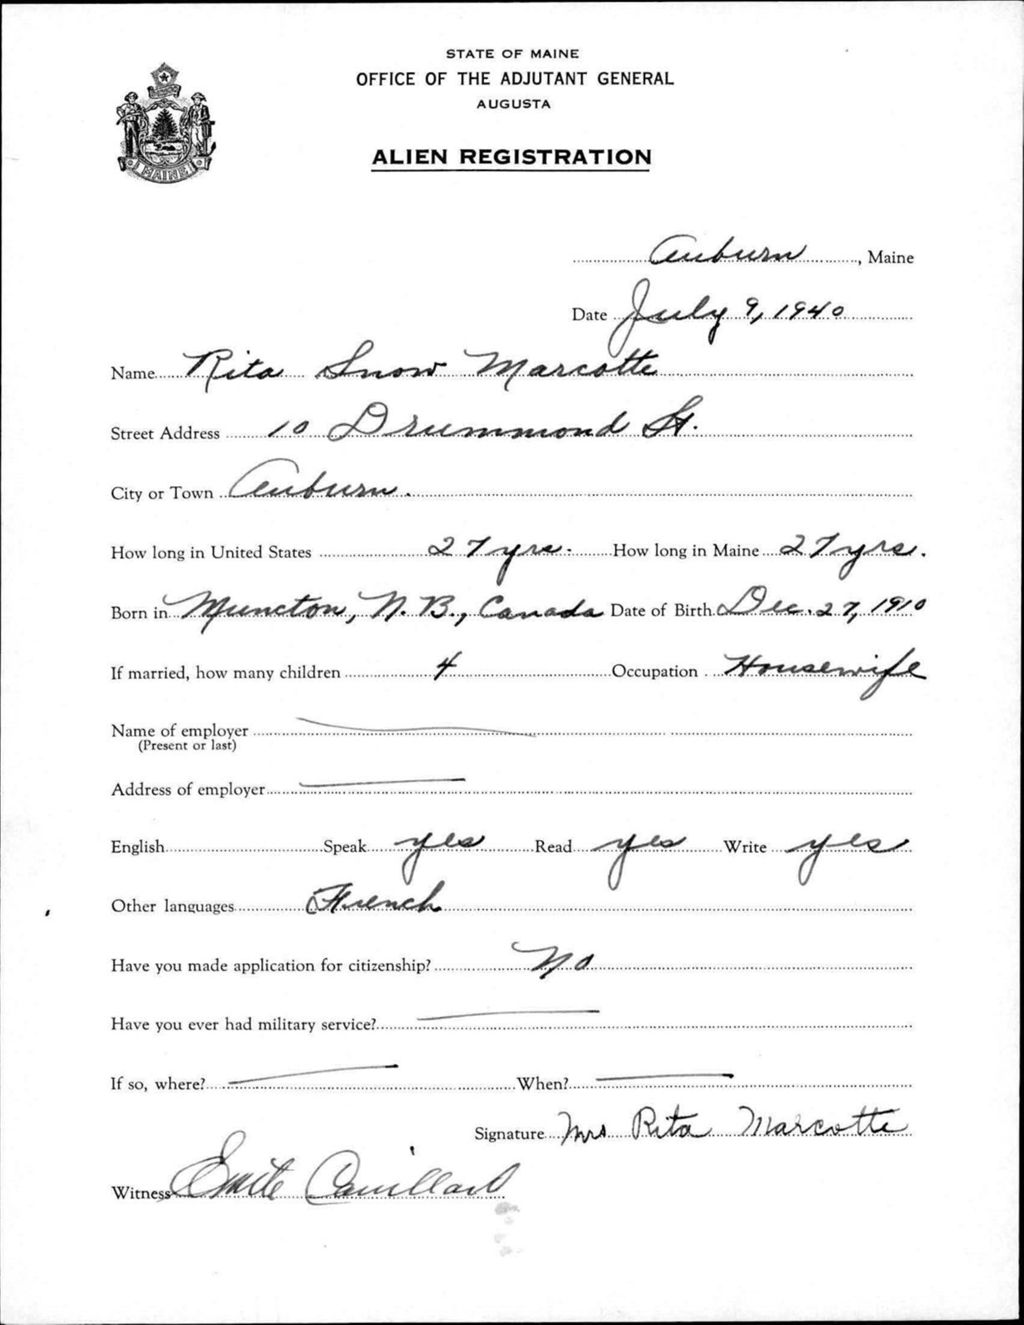 STATE OF MAINE
OFFICE OF THE ADJUTANT GENERAL
AUGUSTA
ALIEN REGISTRATION
MAINE
Auburn, Maine
Date July 9, 1940
Name Rita Snow Marcotte
Street Address 10 Drummond St.
City or Town Auburn.
How long in United States 27 yrs. How long in Maine 27 yrs.
Born in Muncton, N. B., Canada Date of Birth Dec. 27, 1910
If married, how many children 4 Occupation Housewife
Name of employer
(Present or last)
Address of employer
English Speak yes Read yes Write yes
Other languages French
Have you made application for citizenship? No
Have you ever had military service?
If so, where? When?
Signature Mrs Rita Marcotte
Witness